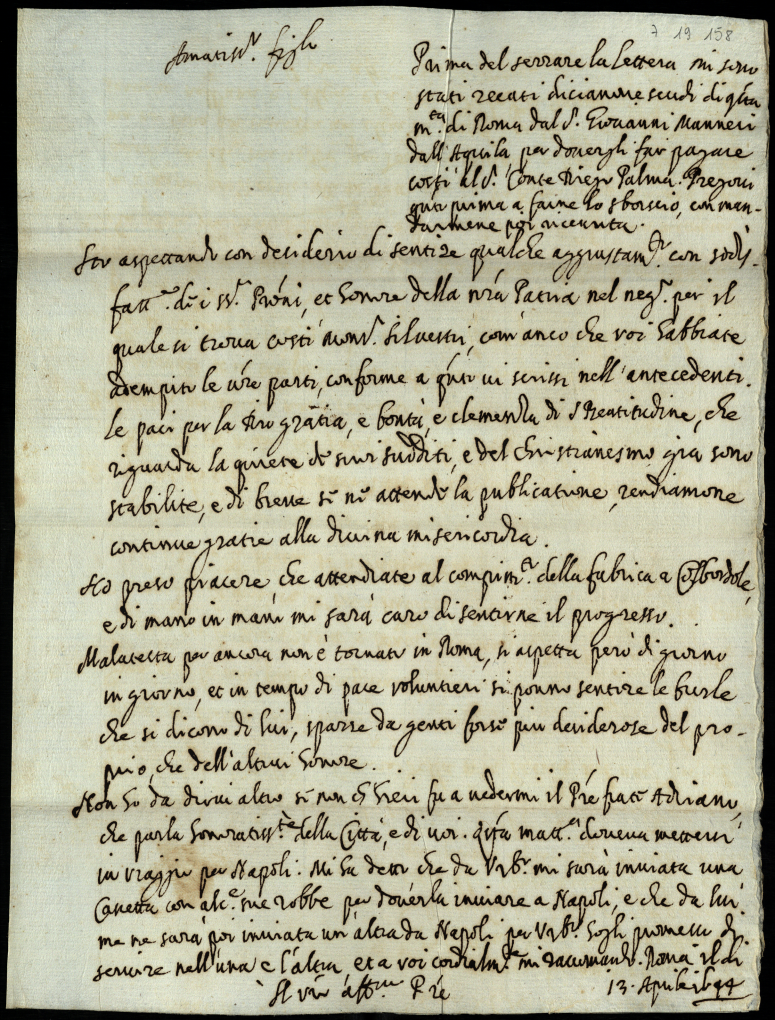 7 19 158
Amatiss.r figlio
Prima del serrare la lettera mi sono
stati recati dicianove scudi di q.ta
m.ta di Roma dal S. Giovanni Manneri
dall'Aquila per dovergli far pagare
costì al S. Conte Diego Palma. Pregovi
q.to prima a farne lo sborscio, con man-
darmene poi ricevuta.
Sto aspettando con desiderio di sentire qualche aggiustam.to con sodis-
fatt.e de i SS.ri Proni, et honore della nra Patria nel neg.o per il
quale si trova costì Mons.r Silvestri, com'anco che voi habbiate
adempito le vre parti, conforme a q.nto vi scrissi nell'antecedenti.
Le paci per la Dio gratia, e bontà, e clemenza di S Beatitudine, che
riguarda la quiete de suoi sudditi, e del Christianesmo gia sono
stabilite, e di breve se ne attende la publicatione, rendiamone
continue gratie alla divina misericordia.
Ho preso piacere, che attendiate al compim.to della fabrica a Colbordole,
e di mano in mano mi sarà caro di sentirne il progresso.
Malatesta per ancora non è tornato in Roma, si aspetta però di giorno
in giorno, et in tempo di pace voluntieri si ponno sentire le burle
che si dicono di lui, sparse da genti forse più desiderose del pro-
prio, che dell'altrui honore.
Non ho da dirvi altro se non ch hieri fu a vedermi il Pre frate Adriano,
che parla honoratiss.te della Città, e di voi. Q.sta matt.a doveva mettersi
in viaggio per Napoli. Mi ha detto che da Urb.o mi sarà inviata una
Cassetta con alc.e sue robbe per doverla inviare a Napoli, e che da lui
me ne sarà poi inviata un'altra da Napoli per Urb.o hogli promesso di
servire nell'una e l'altra, et a voi cordialm.te mi racomando. Roma il di
13. Aprile 1644
Il vro aff.mo Pre